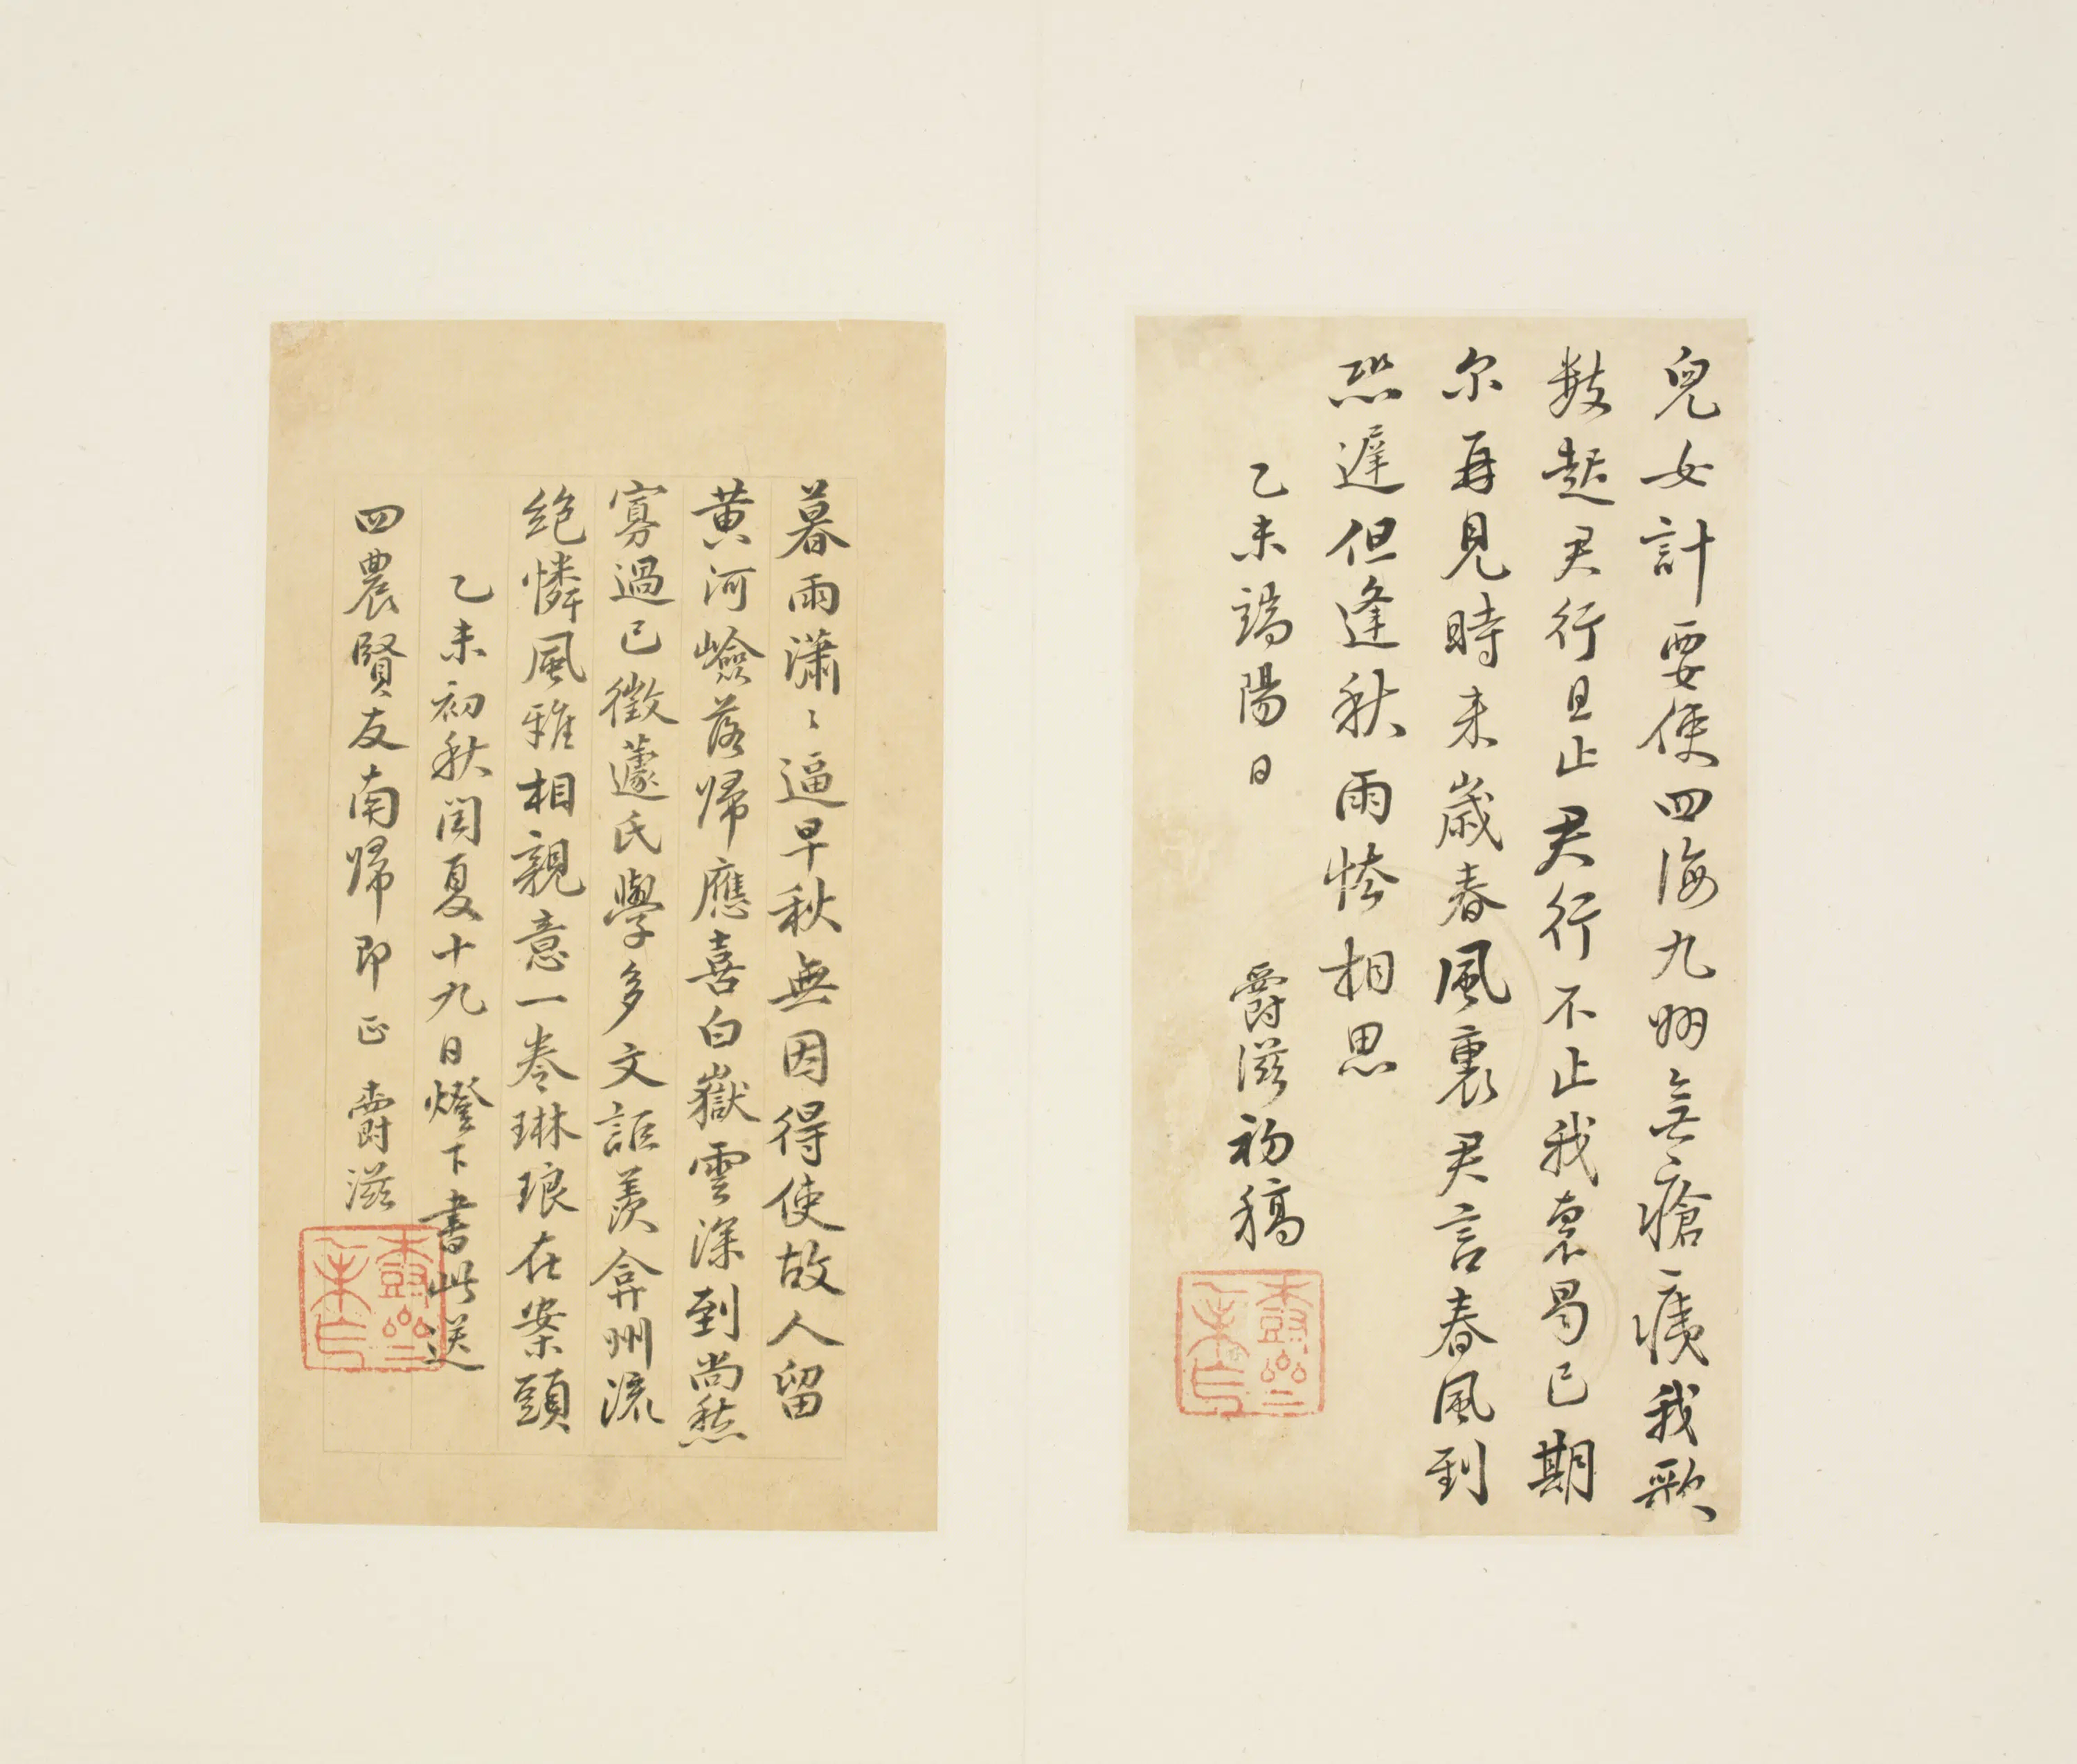 兒女計要使四海九州無瘡痍我歌
數起君行且止君行不止我衷曷已期
尔再見時来歲春風裏君言春風到
恐遲但逢秋雨恠相思
乙未端陽日 爵滋初稿
暮雨瀟〻逼早秋無因得使故人留
黄河嶮落歸應喜白嶽雲深到尚愁
寡過已徵蘧氏學多文詎羨弇州流
絶憐風雅相親意一卷琳琅在案頭
乙未初秋閏夏十九日燈下書此送
四農賢友南歸即正 爵滋